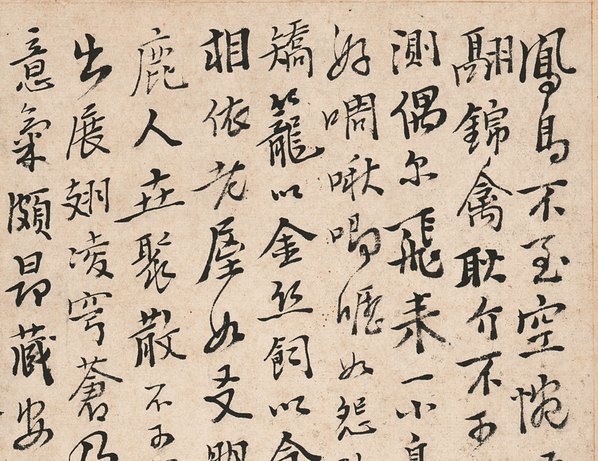 鳳鳥不至空惋
翮錦禽耿介不可
測偶尔飛来一小
好啁啾鳴嚦如怨
矯籠以金丝飼以
相依老屋如友朋
鹿人世聚散不可
出展翅凌穹蒼乃
意氣頗昂藏安